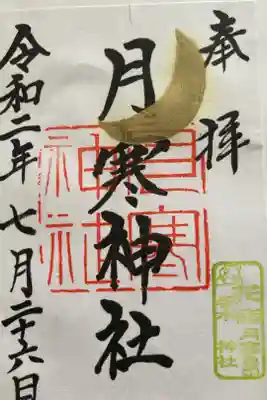 奉拝
月寒神社
月寒神社
令和二年七月二十六日